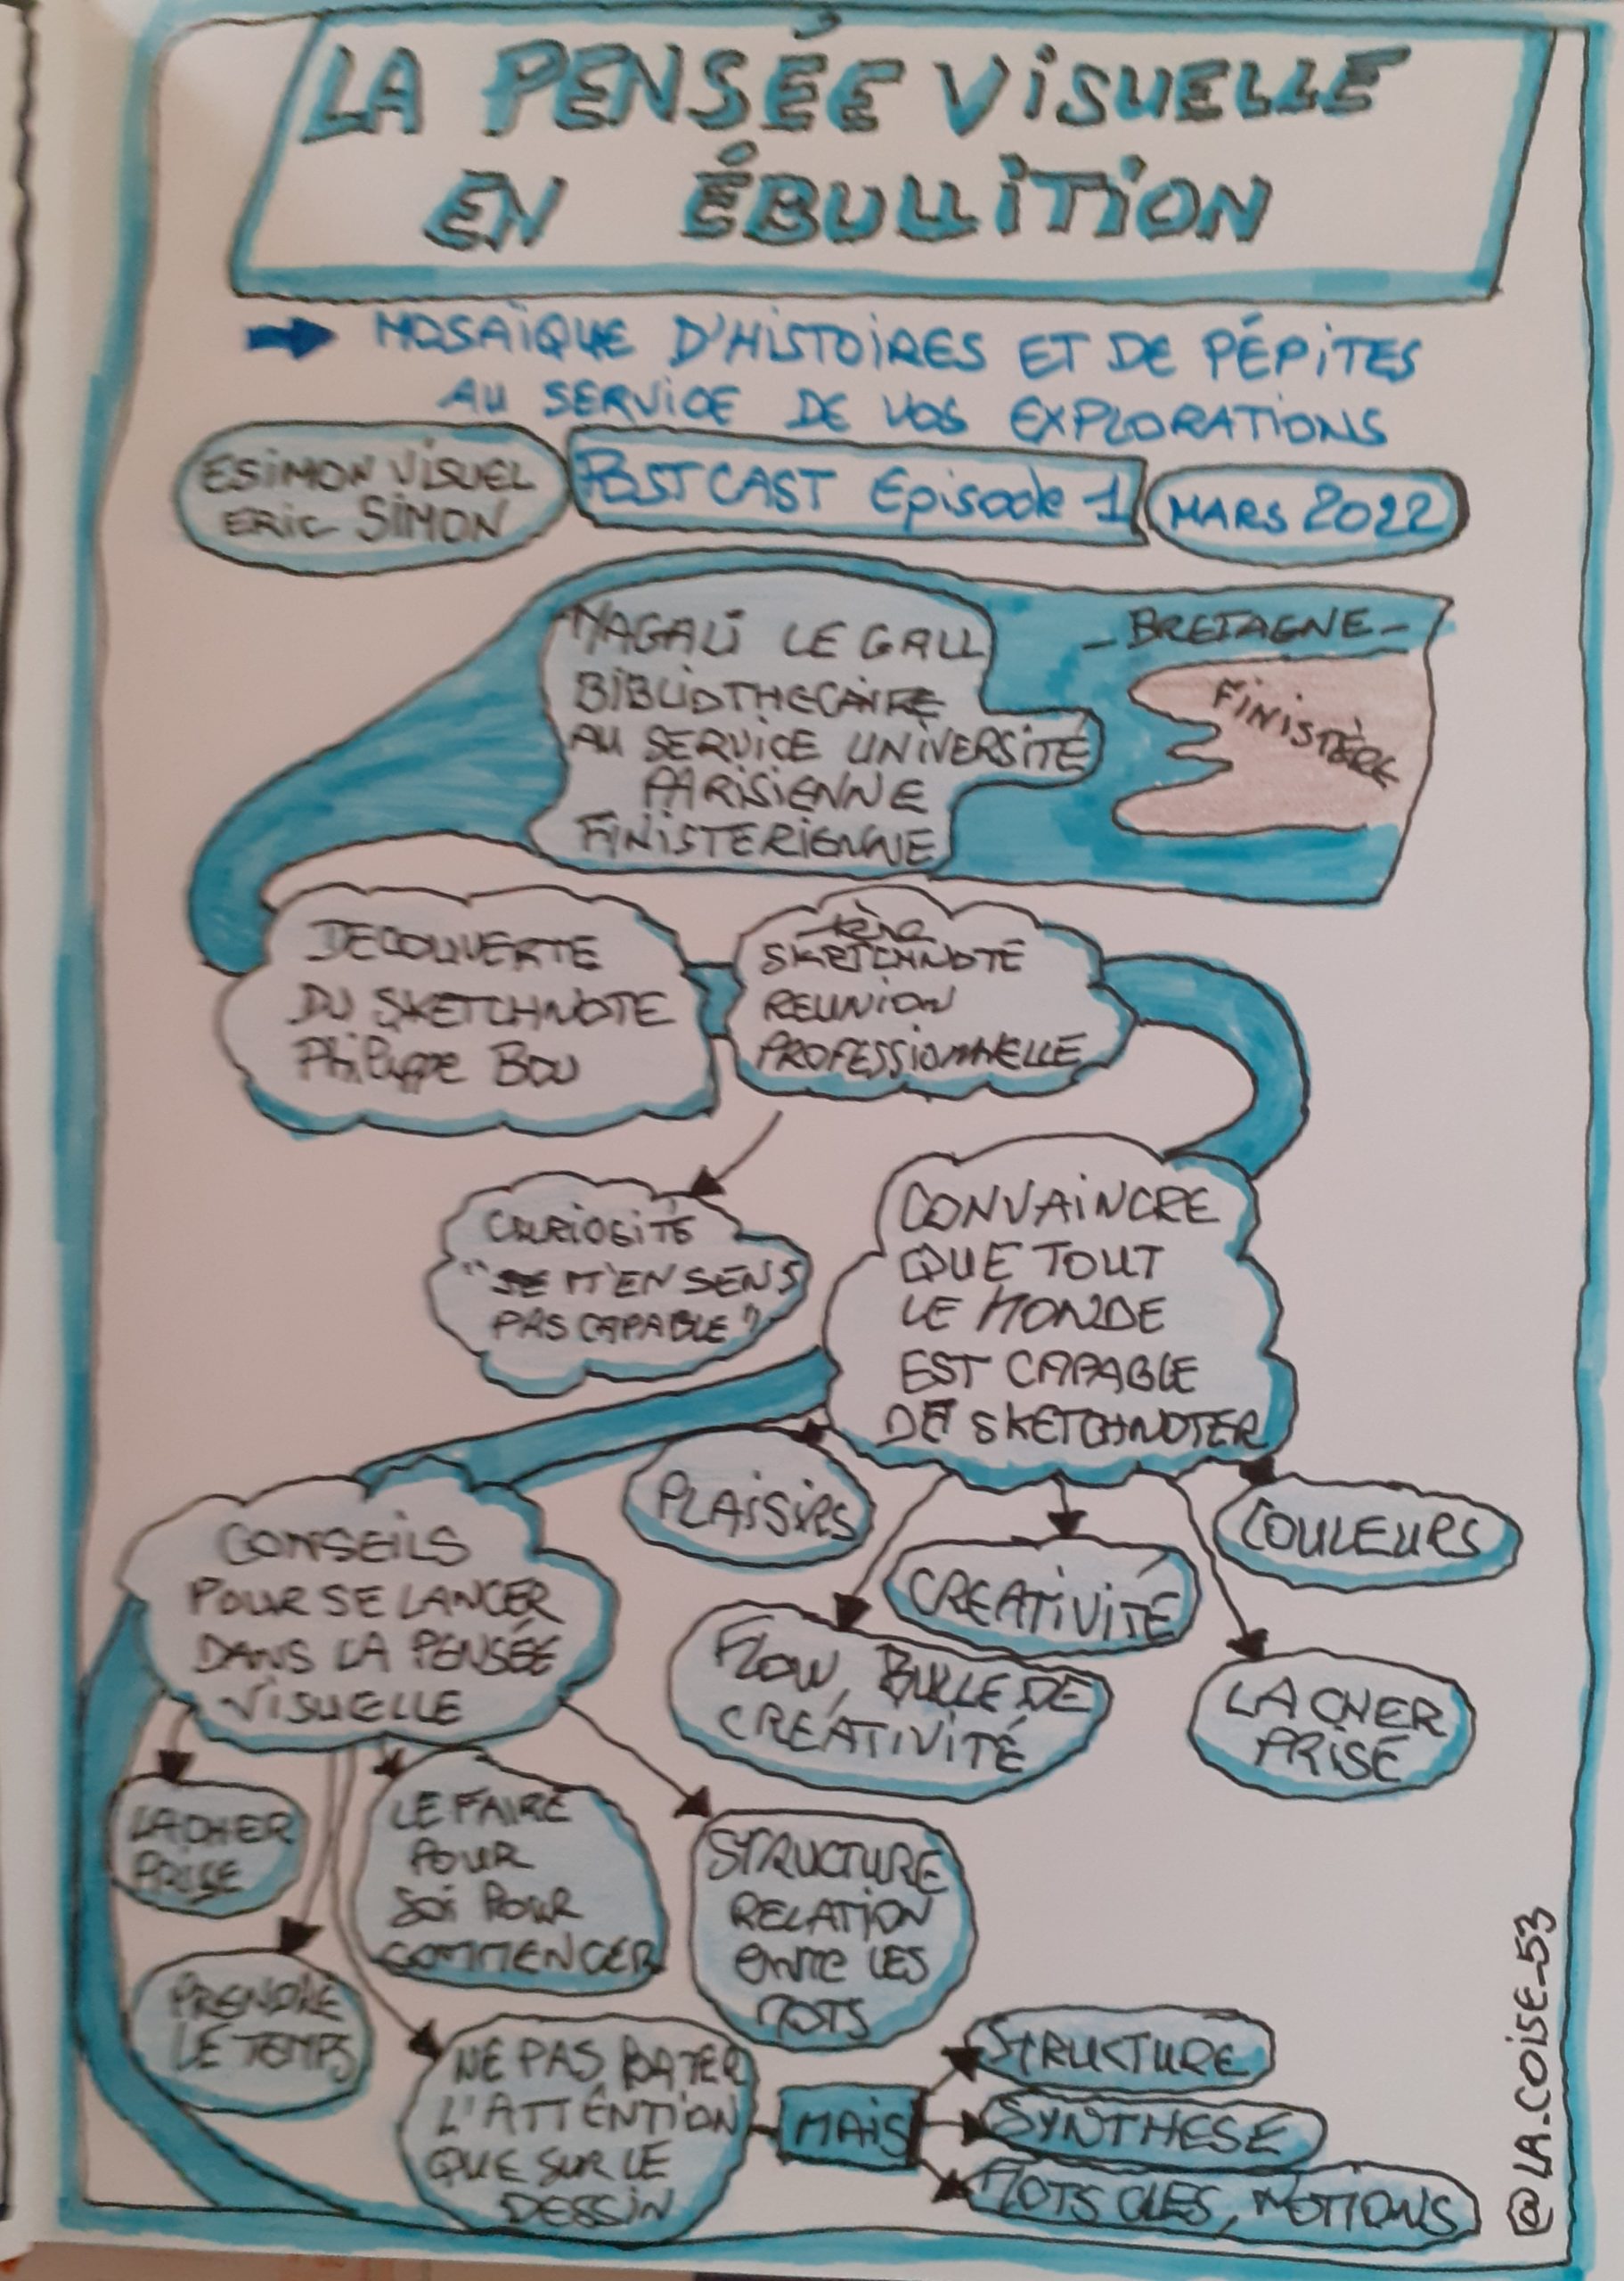 LA PENSÉE VISUELLE
EN ÉBULLITION
MOSAÏQUE D'HISTOIRES ET DE PÉPITES
AU SERVICE DE VOS EXPLORATIONS
ESIMON VISUEL
ERIC SIMON
POSTCAST Episode 1
MARS 2022
MAGALI LE GALL
BIBLIOTHECAIRE
AU SERVICE UNIVERSITÉ
PARISIENNE
FINISTERIENNE
- BRETAGNE -
FINISTÈRE
DECOUVERTE
DU SKETCHNOTE
Philippe BOU
1ère
SKETCHNOTE
REUNION
PROFESSIONNELLE
CURIOSITÉ
"JE M'EN SENS
PAS CAPABLE"
CONVAINCRE
QUE TOUT
LE MONDE
EST CAPABLE
DE SKETCHNOTER
PLAISIRS
COULEURS
CREATIVITÉ
FLOW, BULLE DE
CRÉATIVITÉ
LACHER
PRISE
CONSEILS
POUR SE LANCER
DANS LA PENSÉE
VISUELLE
LACHER
PRISE
LE FAIRE
POUR
SOI POUR
COMMENCER
STRUCTURE
RELATION
ENTRE LES
MOTS
PRENDRE
LE TEMPS
NE PAS
L'ATTENTION
QUE SUR LE
DESSIN
MAIS
STRUCTURE
SYNTHESE
MOTS CLES, NOTIONS
@LA.COISE_53